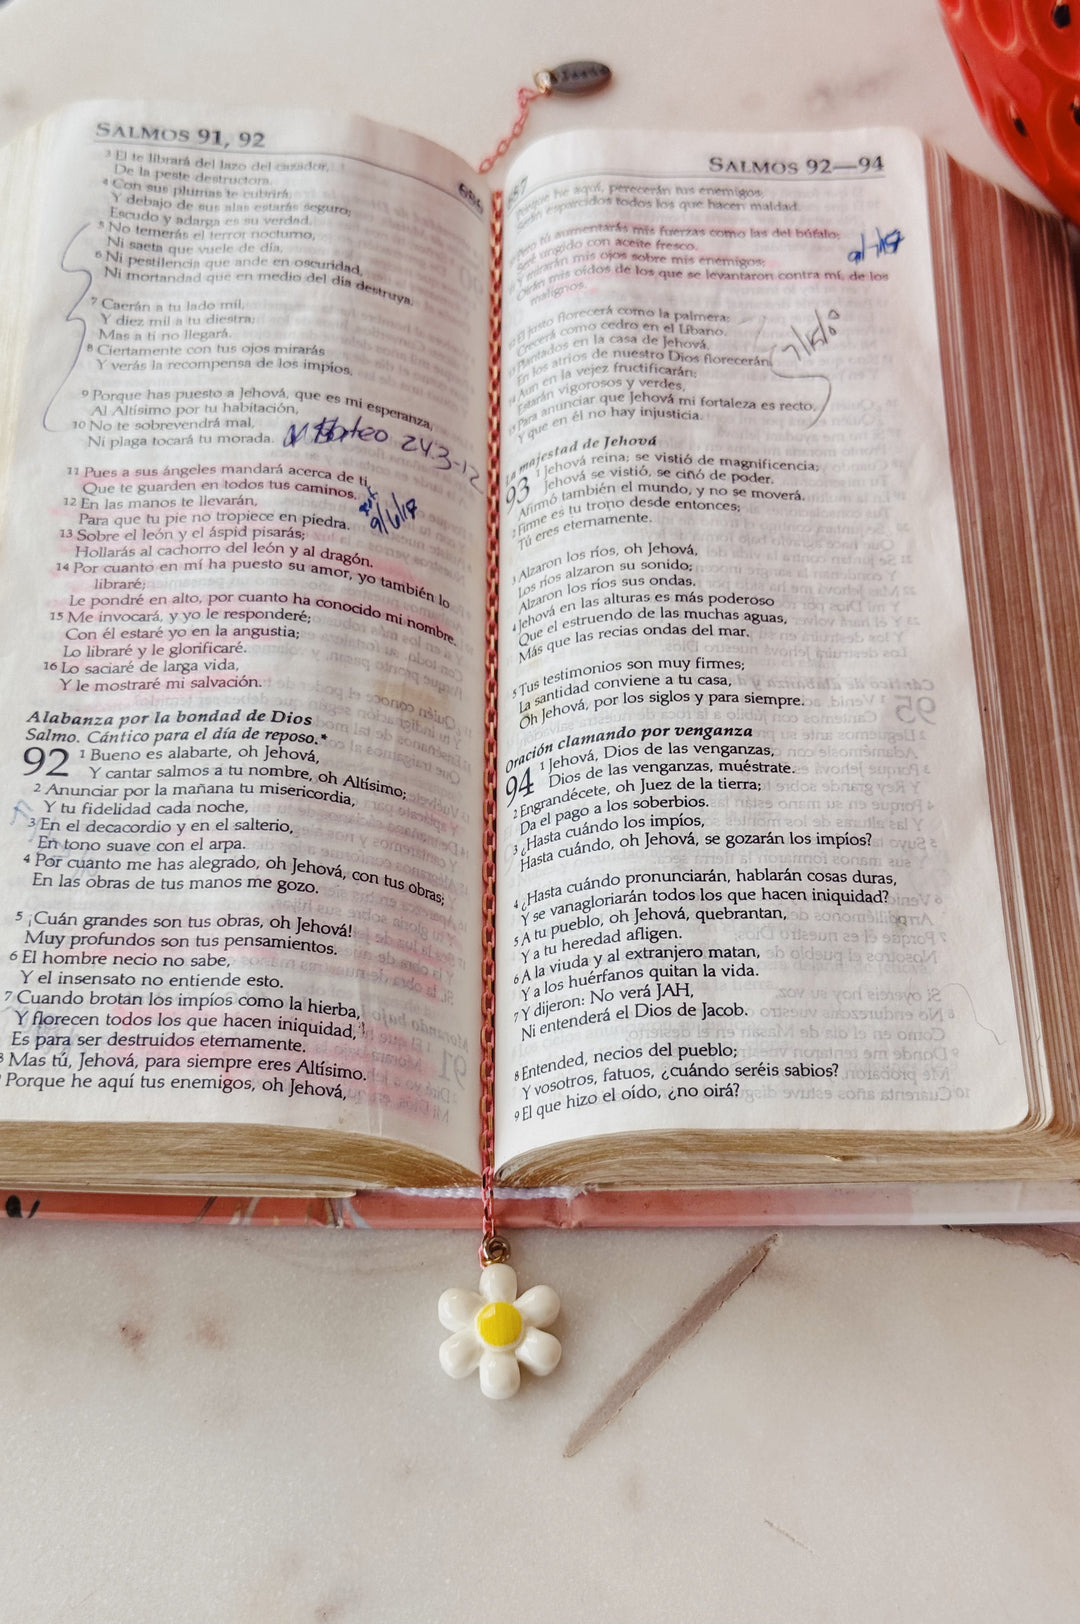 SALMOS 91, 92
686
3 El te librará del lazo del cazador,
De la peste destructora.
4 Con sus plumas te cubrirá,
Y debajo de sus alas estarás seguro;
Escudo y adarga es su verdad.
5 No temerás el terror nocturno,
Ni saeta que vuele de día,
6 Ni pestilencia que ande en oscuridad,
Ni mortandad que en medio del día destruya.
7 Caerán a tu lado mil,
Y diez mil a tu diestra;
Mas a ti no llegará.
8 Ciertamente con tus ojos mirarás
Y verás la recompensa de los impíos.
9 Porque has puesto a Jehová, que es mi esperanza,
Al Altísimo por tu habitación,
10 No te sobrevendrá mal,
Ni plaga tocará tu morada.
Mateo 24:3-12
11 Pues a sus ángeles mandará acerca de ti,
Que te guarden en todos tus caminos.
12 En las manos te llevarán,
Para que tu pie no tropiece en piedra.
9/6/18
13 Sobre el león y el áspid pisarás;
Hollarás al cachorro del león y al dragón.
14 Por cuanto en mí ha puesto su amor, yo también lo
libraré;
Le pondré en alto, por cuanto ha conocido mi nombre.
15 Me invocará, y yo le responderé;
Con él estaré yo en la angustia;
Lo libraré y le glorificaré.
16 Lo saciaré de larga vida,
Y le mostraré mi salvación.
Alabanza por la bondad de Dios
Salmo. Cántico para el día de reposo.*
92 1 Bueno es alabarte, oh Jehová,
Y cantar salmos a tu nombre, oh Altísimo;
2 Anunciar por la mañana tu misericordia,
Y tu fidelidad cada noche,
3 En el decacordio y en el salterio,
En tono suave con el arpa.
4 Por cuanto me has alegrado, oh Jehová, con tus obras;
En las obras de tus manos me gozo.
5 ¡Cuán grandes son tus obras, oh Jehová!
Muy profundos son tus pensamientos.
6 El hombre necio no sabe,
Y el insensato no entiende esto.
7 Cuando brotan los impíos como la hierba,
Y florecen todos los que hacen iniquidad,
Es para ser destruidos eternamente.
8 Mas tú, Jehová, para siempre eres Altísimo.
Porque he aquí tus enemigos, oh Jehová,
687
SALMOS 92—94
Porque he aquí, perecerán tus enemigos;
Serán esparcidos todos los que hacen maldad.
Pero tú aumentarás mis fuerzas como las del búfalo;
Seré ungido con aceite fresco.
Y mirarán mis ojos sobre mis enemigos;
Oirán mis oídos de los que se levantaron contra mí, de los
malignos.
12 El justo florecerá como la palmera;
Crecerá como cedro en el Líbano.
13 Plantados en la casa de Jehová,
En los atrios de nuestro Dios florecerán.
14 Aun en la vejez fructificarán;
Estarán vigorosos y verdes,
15 Para anunciar que Jehová mi fortaleza es recto,
Y que en él no hay injusticia.
La majestad de Jehová
93 1 Jehová reina; se vistió de magnificencia;
Jehová se vistió, se ciñó de poder.
Afirmó también el mundo, y no se moverá.
2 Firme es tu trono desde entonces;
Tú eres eternamente.
3 Alzaron los ríos, oh Jehová,
Los ríos alzaron su sonido;
Alzaron los ríos sus ondas.
4 Jehová en las alturas es más poderoso
Que el estruendo de las muchas aguas,
Más que las recias ondas del mar.
5 Tus testimonios son muy firmes;
La santidad conviene a tu casa,
Oh Jehová, por los siglos y para siempre.
Oración clamando por venganza
94 1 Jehová, Dios de las venganzas,
Dios de las venganzas, muéstrate.
2 Engrandécete, oh Juez de la tierra;
Da el pago a los soberbios.
3 ¿Hasta cuándo los impíos,
Hasta cuándo, oh Jehová, se gozarán los impíos?
4 ¿Hasta cuándo pronunciarán, hablarán cosas duras,
Y se vanagloriarán todos los que hacen iniquidad?
5 A tu pueblo, oh Jehová, quebrantan,
Y a tu heredad afligen.
6 A la viuda y al extranjero matan,
Y a los huérfanos quitan la vida.
7 Y dijeron: No verá JAH,
Ni entenderá el Dios de Jacob.
8 Entended, necios del pueblo;
Y vosotros, fatuos, ¿cuándo seréis sabios?
9 El que hizo el oído, ¿no oirá?